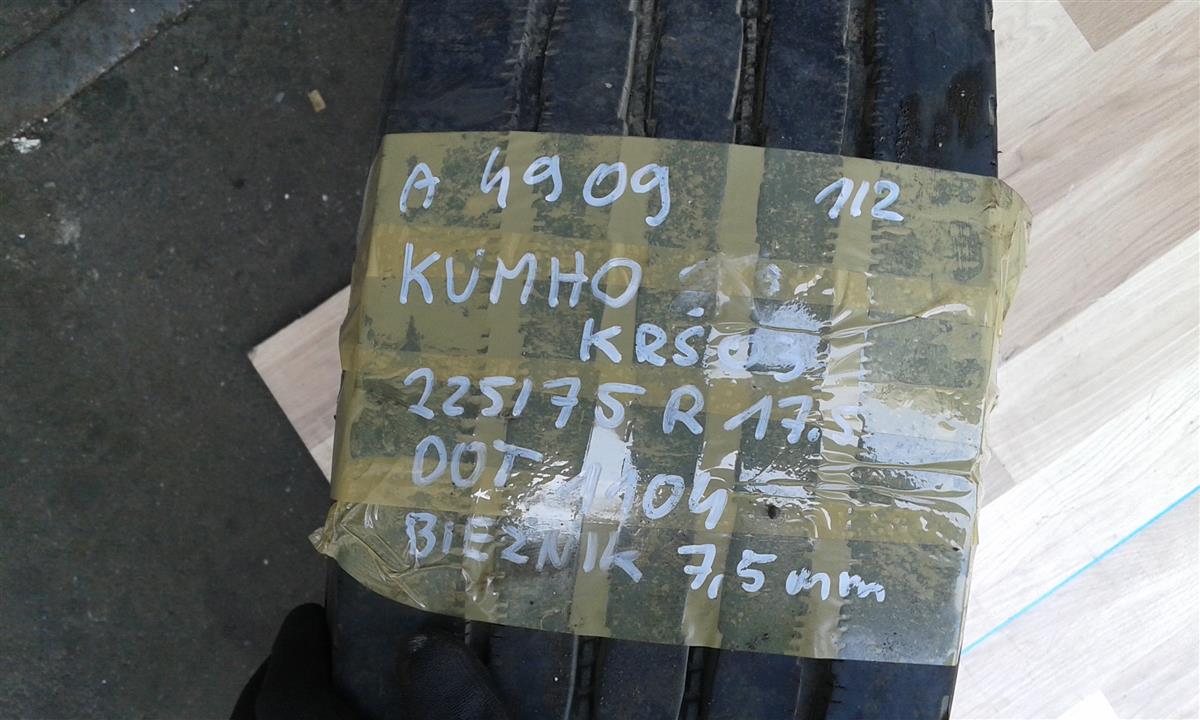 A 4909 112
KUMHO
KRS03
225/75 R 17.5
DOT 1104
BIEZNIK 7,5 mm